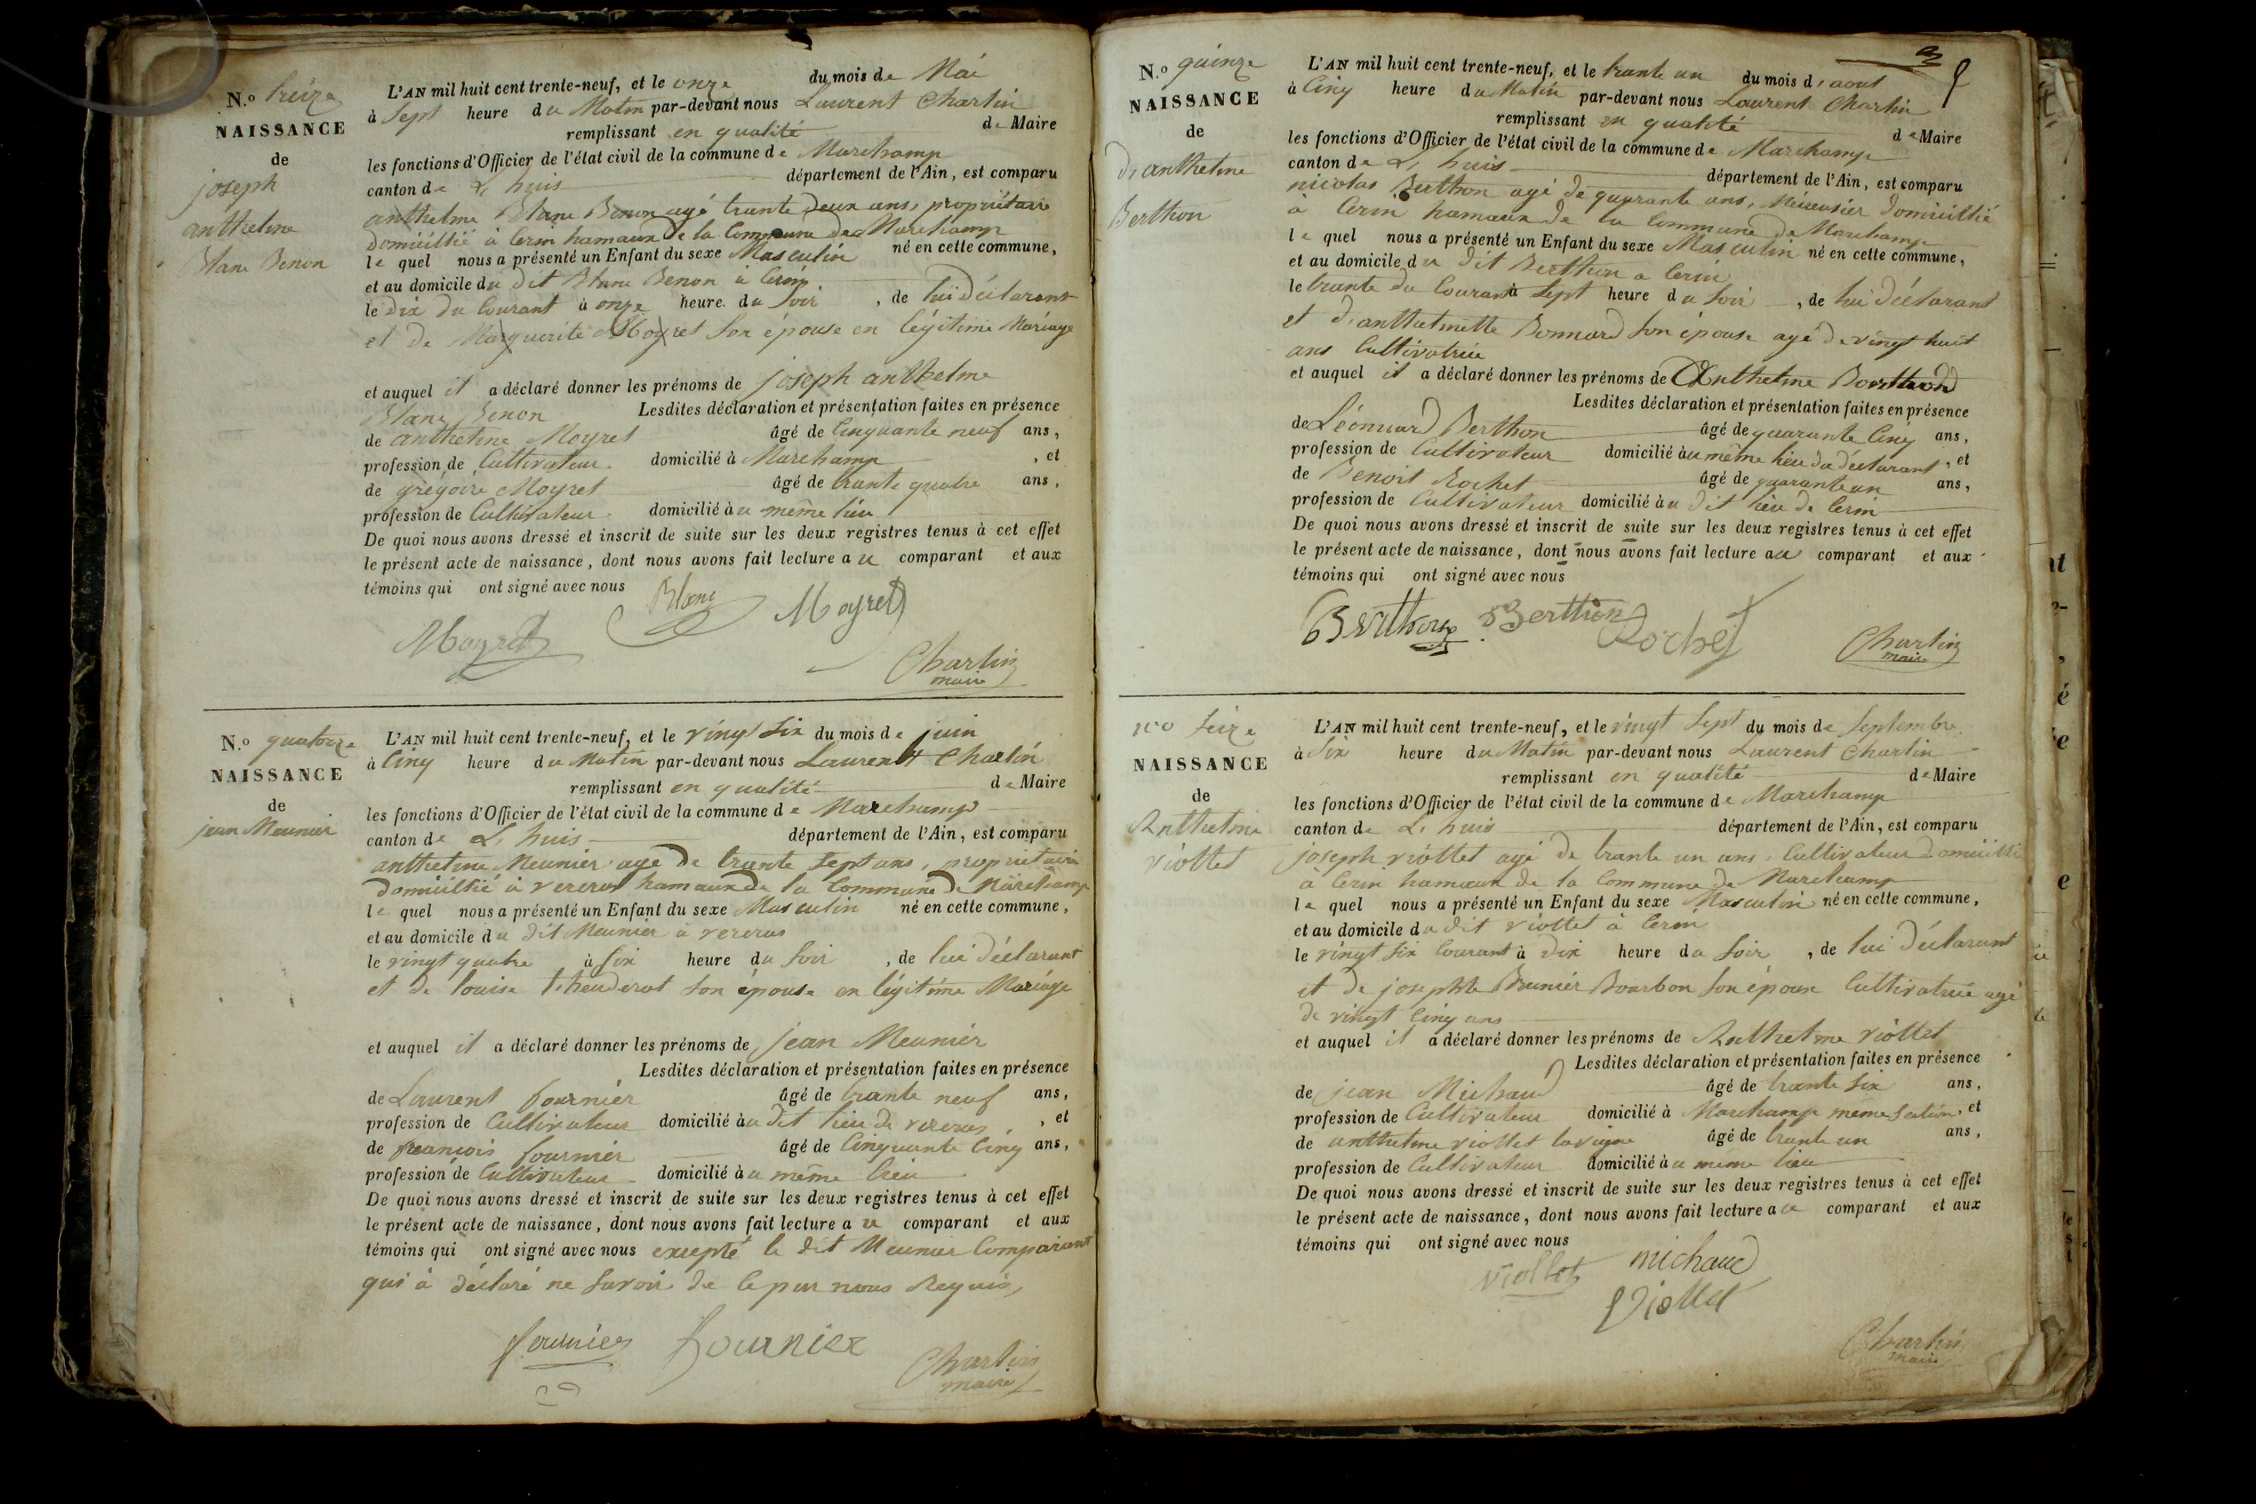 N.o treize
NAISSANCE
de
joseph
anthelme
Blanc Benon
L'AN mil huit cent trente-neuf, et le onze du mois de Mai
à Sept heure du Matin par-devant nous Laurent Charlin
remplissant en qualité de Maire
les fonctions d'Officier de l'état civil de la commune de Marchamp
canton de L. huis département de l'Ain, est comparu
anthelme Blanc Benon agé trante deux ans, propriétaire
domicillié à Cerin hamaux de la Commune de Marchamp
le quel nous a présenté un Enfant du sexe Masculin né en cette commune,
et au domicile du dit Blanc Benon à Cerin
le dix du Courant à onze heure du Soir, de lui déclarant
et de Marguerite Moyret son épouse en légitime Mariage
et auquel il a déclaré donner les prénoms de joseph anthelme
Blanc Benon Lesdites déclaration et présentation faites en présence
de anthelme Moyret âgé de Cinquante neuf ans,
profession de Cultivateur domicilié à Marchamp, et
de grégoire Moyret âgé de trante quatre ans,
profession de Cultivateur domicilié àu même lieu
De quoi nous avons dressé et inscrit de suite sur les deux registres tenus à cet effet
le présent acte de naissance, dont nous avons fait lecture au comparant et aux
témoins qui ont signé avec nous
Blanc Moyret
Moyret
Charlin
maire
N.o quatorze
NAISSANCE
de
jean Meunier
L'AN mil huit cent trente-neuf, et le vingt six du mois de juin
à Cinq heure du Matin par-devant nous Laurent Charlin
remplissant en qualité de Maire
les fonctions d'Officier de l'état civil de la commune de Marchamp
canton de L. huis département de l'Ain, est comparu
anthelme Meunier agé de trante sept ans, propriétaire
domicillié à vereras hamaux de la Commune de Marchamp
le quel nous a présenté un Enfant du sexe Masculin né en cette commune,
et au domicile du dit Meunier à vereras
le vingt quatre à six heure du soir, de lui déclarant
et de louise son épouse en légitime Mariage
et auquel il a déclaré donner les prénoms de jean Meunier
Lesdites déclaration et présentation faites en présence
de Laurent fournier âgé de trante neuf ans,
profession de Cultivateur domicilié àu dit lieu de vereras, et
de françois fournier âgé de Cinquante Cinq ans,
profession de Cultivateur domicilié àu même lieu
De quoi nous avons dressé et inscrit de suite sur les deux registres tenus à cet effet
le présent acte de naissance, dont nous avons fait lecture au comparant et aux
témoins qui ont signé avec nous excepté le dit Meunier Comparant
qui à déclaré ne savoir de Ce par nous Requis
fournier fournier
Charlin
maire
N.o quinze
NAISSANCE
de
d'anthelme
Berthon
L'AN mil huit cent trente-neuf, et le trante un du mois d'aout
à Cinq heure du Matin par-devant nous Laurent Charlin
remplissant en qualité de Maire
les fonctions d'Officier de l'état civil de la commune de Marchamp
canton de L. huis département de l'Ain, est comparu
nicolas Berthon agé de quarante ans, domicillié
à Cerin hamaux de la Commune de Marchamp
le quel nous a présenté un Enfant du sexe Masculin né en cette commune,
et au domicile du dit Berthon a Cerin
le trante du Courant à sept heure du soir, de lui déclarant
et d'anthelmette Bonnard son épouse agé de vingt huit
ans Cultivatrice
et auquel il a déclaré donner les prénoms de Anthelme Berthon
Lesdites déclaration et présentation faites en présence
de Léonnard Berthon âgé de quarante Cinq ans,
profession de Cultivateur domicilié àu même lieu du déclarant, et
de Benoit Rochet âgé de quarante un ans,
profession de Cultivateur domicilié àu dit lieu de Cerin
De quoi nous avons dressé et inscrit de suite sur les deux registres tenus à cet effet
le présent acte de naissance, dont nous avons fait lecture au comparant et aux
témoins qui ont signé avec nous
Berthon Berthon Rochet
Charlin
maire
No seize
NAISSANCE
de
Anthelme
viottet
L'AN mil huit cent trente-neuf, et le vingt Sept du mois de Septembre
à Six heure du Matin par-devant nous Laurent Charlin
remplissant en qualité de Maire
les fonctions d'Officier de l'état civil de la commune de Marchamp
canton de L. huis département de l'Ain, est comparu
joseph viottet agé de trante un ans, Cultivateur domicillié
à Cerin hamaux de la Commune de Marchamp
le quel nous a présenté un Enfant du sexe Masculin né en cette commune,
et au domicile du dit viottet à Cerin
le vingt six Courant à dix heure du soir, de lui déclarant
et de josephte Bourbon son épouse Cultivatrice agé
de vingt Cinq ans
et auquel il a déclaré donner les prénoms de Anthelme viottet
Lesdites déclaration et présentation faites en présence
de jean Michaud âgé de trante six ans,
profession de Cultivateur domicilié à Marchamp même section, et
de anthelme viottet lavigne âgé de trante un ans,
profession de Cultivateur domicilié àu même lieu
De quoi nous avons dressé et inscrit de suite sur les deux registres tenus à cet effet
le présent acte de naissance, dont nous avons fait lecture au comparant et aux
témoins qui ont signé avec nous
viottet michaud
Viottet
Charlin
maire